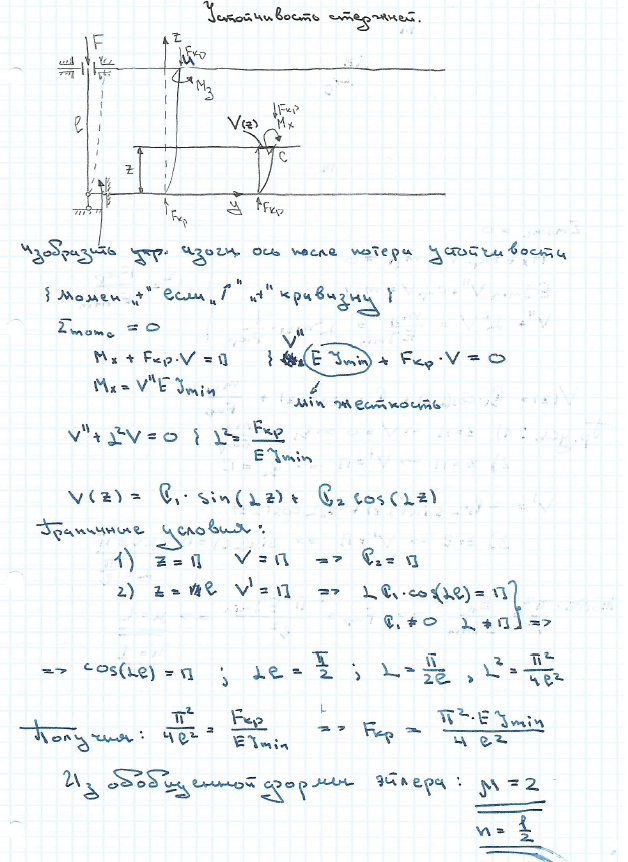 Устойчивость стержней.
F
z
Fкр
Mз
l
Fкр
Mx
V(z)
C
z
y
Fкр
Fкр
изобразить упр. изогн. ось после потери устойчивости
{ момен „+" если „Г" „+" кривизну }
Σмомс = 0
Mx + Fкр·V = 0 { V'' EJmin + Fкр·V = 0
Mx = V''EJmin min жесткость
V'' + L²V = 0 { L² = Fкр / EJmin
V(z) = C₁ · sin(Lz) + C₂ cos(Lz)
Граничные условия:
1) z = 0 V = 0 => C₂ = 0
2) z = l V' = 0 => LC₁·cos(Le) = 0
C₁ ≠ 0 L ≠ 0 ] =>
=> cos(Le) = 0 ; Le = π/2 ; L = π/2e , L² = π²/4e²
Получим: π²/4e² = Fкр/EJmin => Fкр = π²·EJmin / 4e²
Из обобщенной формы Эйлера: M = 2
n = 1/2